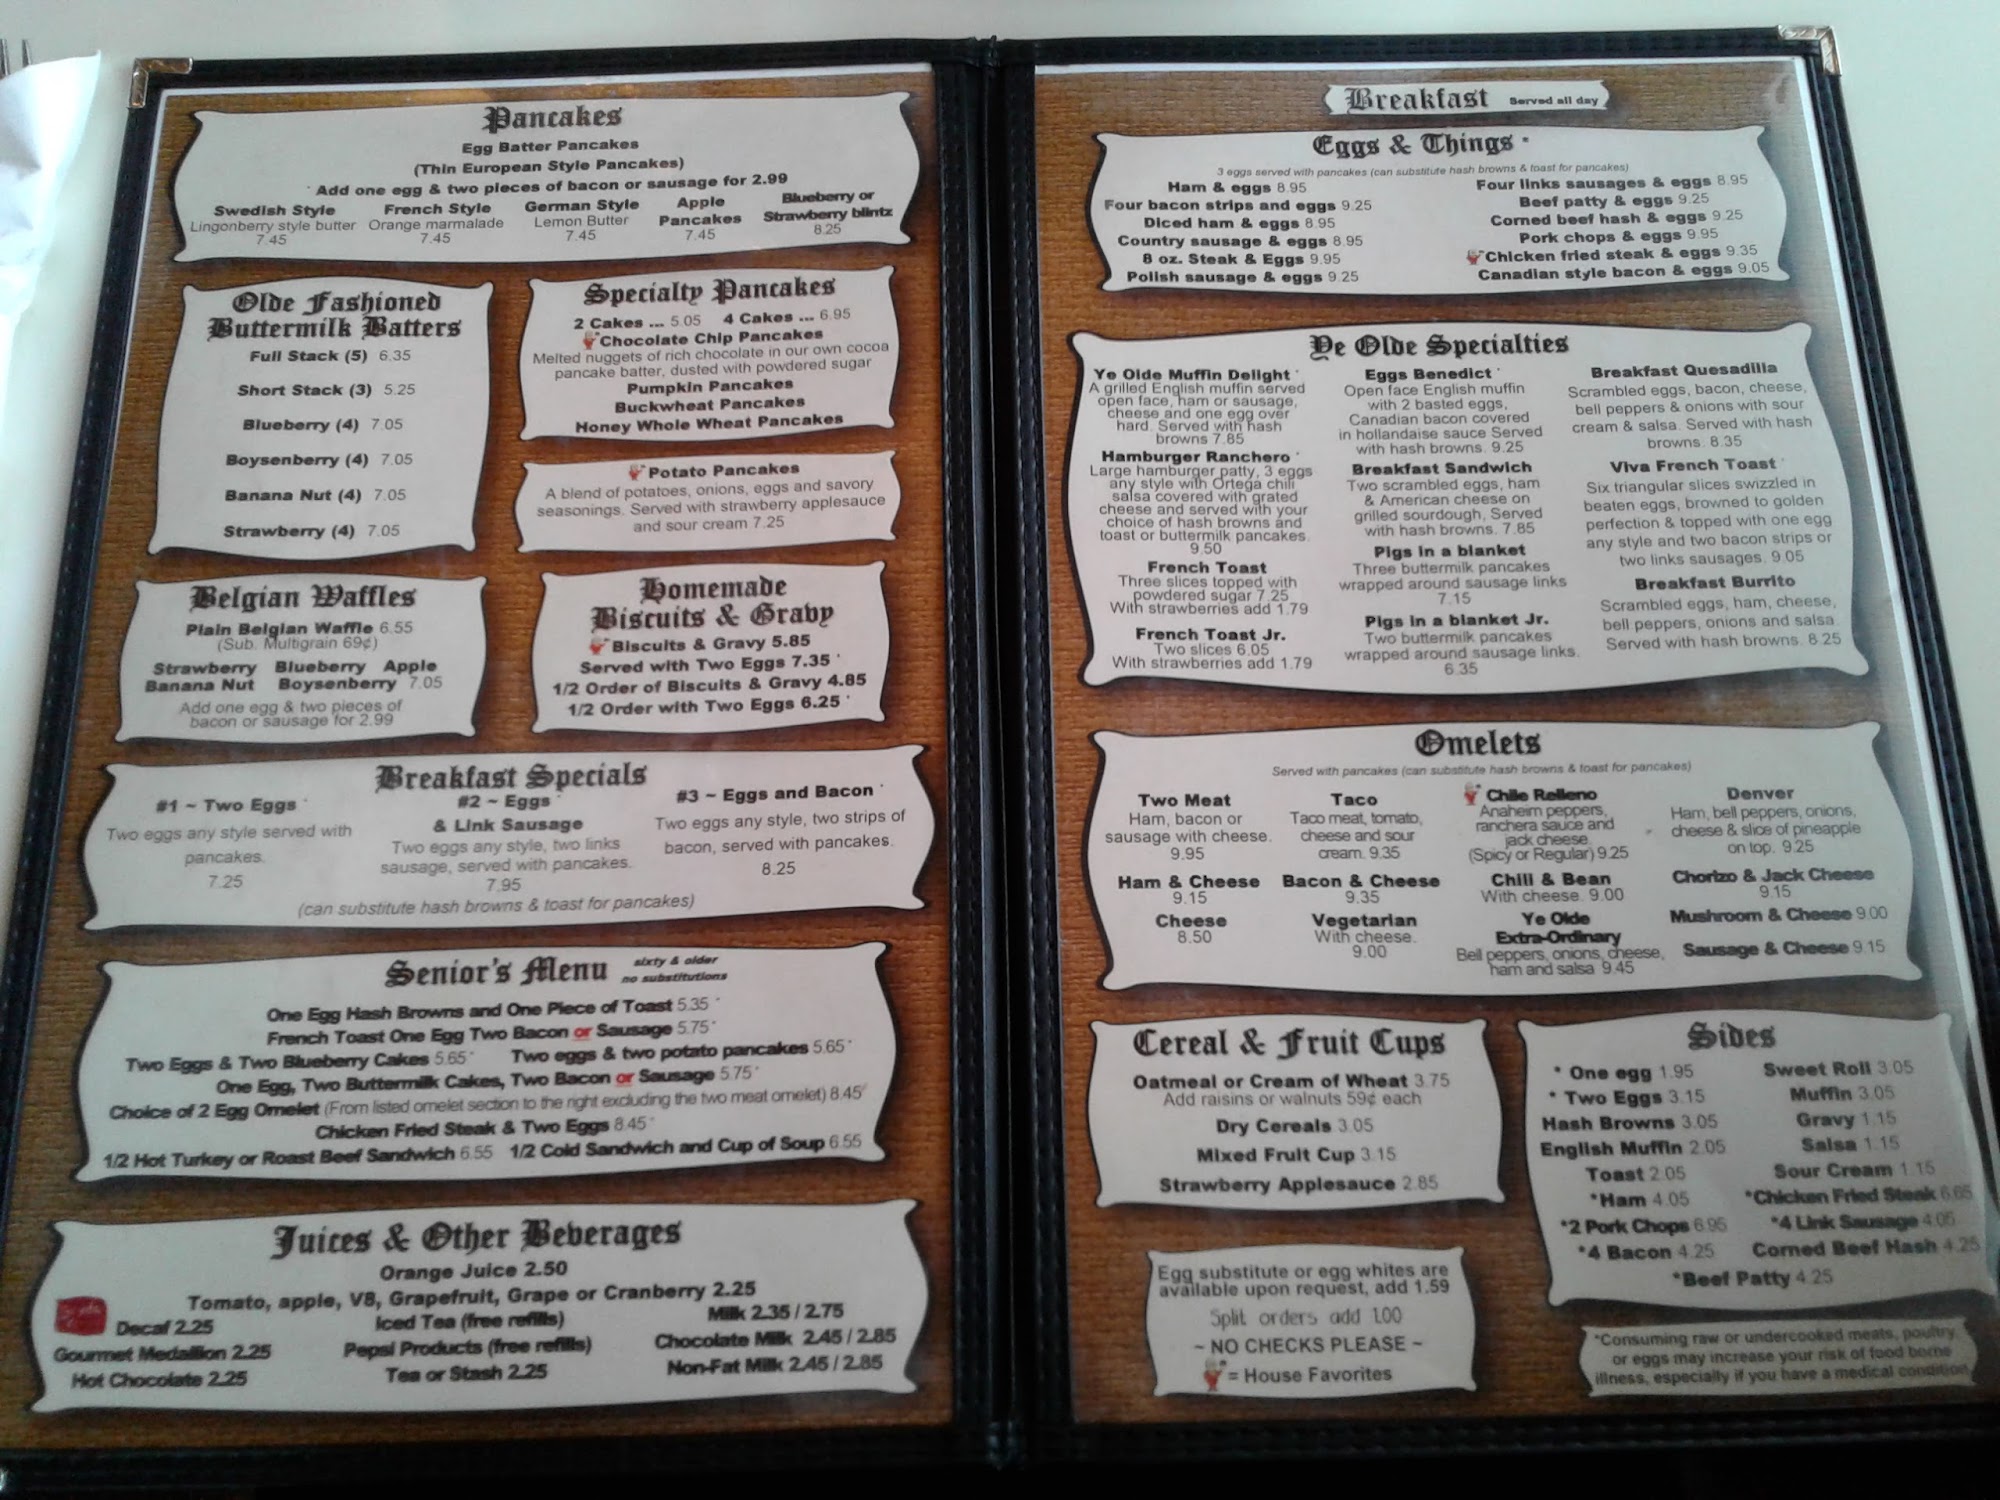 Pancakes
Egg Batter Pancakes
(Thin European Style Pancakes)
* Add one egg & two pieces of bacon or sausage for 2.99
Swedish Style
Lingonberry style butter
7.45
French Style
Orange marmalade
7.45
German Style
Lemon Butter
7.45
Apple
Pancakes
7.45
Blueberry or
Strawberry blintz
8.25
Olde Fashioned
Buttermilk Batters
Full Stack (5) 6.35
Short Stack (3) 5.25
Blueberry (4) 7.05
Boysenberry (4) 7.05
Banana Nut (4) 7.05
Strawberry (4) 7.05
Specialty Pancakes
2 Cakes ... 5.05 4 Cakes ... 6.95
Chocolate Chip Pancakes
Melted nuggets of rich chocolate in our own cocoa
pancake batter, dusted with powdered sugar
Pumpkin Pancakes
Buckwheat Pancakes
Honey Whole Wheat Pancakes
Potato Pancakes
A blend of potatoes, onions, eggs and savory
seasonings. Served with strawberry applesauce
and sour cream 7.25
Belgian Waffles
Plain Belgian Waffle 6.55
(Sub. Multigrain 69¢)
Strawberry Blueberry Apple
Banana Nut Boysenberry 7.05
Add one egg & two pieces of
bacon or sausage for 2.99
Homemade
Biscuits & Gravy
Biscuits & Gravy 5.85
Served with Two Eggs 7.35 *
1/2 Order of Biscuits & Gravy 4.85
1/2 Order with Two Eggs 6.25 *
Breakfast Specials
#1 ~ Two Eggs *
Two eggs any style served with
pancakes.
7.25
#2 ~ Eggs *
& Link Sausage
Two eggs any style, two links
sausage, served with pancakes.
7.95
#3 ~ Eggs and Bacon *
Two eggs any style, two strips of
bacon, served with pancakes.
8.25
(can substitute hash browns & toast for pancakes)
Senior's Menu sixty & older
no substitutions
One Egg Hash Browns and One Piece of Toast 5.35 *
French Toast One Egg Two Bacon or Sausage 5.75 *
Two Eggs & Two Blueberry Cakes 5.65 * Two eggs & two potato pancakes 5.65 *
One Egg, Two Buttermilk Cakes, Two Bacon or Sausage 5.75 *
Choice of 2 Egg Omelet (From listed omelet section to the right excluding the two meat omelet) 8.45 *
Chicken Fried Steak & Two Eggs 8.45 *
1/2 Hot Turkey or Roast Beef Sandwich 6.55 1/2 Cold Sandwich and Cup of Soup 6.55
Juices & Other Beverages
Orange Juice 2.50
Tomato, apple, V8, Grapefruit, Grape or Cranberry 2.25
Decaf 2.25
Gourmet Medallion 2.25
Hot Chocolate 2.25
Iced Tea (free refills)
Pepsi Products (free refills)
Tea or Stash 2.25
Milk 2.35 / 2.75
Chocolate Milk 2.45 / 2.85
Non-Fat Milk 2.45 / 2.85
Breakfast Served all day
Eggs & Things *
3 eggs served with pancakes (can substitute hash browns & toast for pancakes)
Ham & eggs 8.95
Four bacon strips and eggs 9.25
Diced ham & eggs 8.95
Country sausage & eggs 8.95
8 oz. Steak & Eggs 9.95
Polish sausage & eggs 9.25
Four links sausages & eggs 8.95
Beef patty & eggs 9.25
Corned beef hash & eggs 9.25
Pork chops & eggs 9.95
Chicken fried steak & eggs 9.35
Canadian style bacon & eggs 9.05
Ye Olde Specialties
Ye Olde Muffin Delight *
A grilled English muffin served
open face, ham or sausage,
cheese and one egg over
hard. Served with hash
browns 7.85
Hamburger Ranchero *
Large hamburger patty, 3 eggs
any style with Ortega chili
salsa covered with grated
cheese and served with your
choice of hash browns and
toast or buttermilk pancakes.
9.50
French Toast
Three slices topped with
powdered sugar 7.25
With strawberries add 1.79
French Toast Jr.
Two slices 6.05
With strawberries add 1.79
Eggs Benedict *
Open face English muffin
with 2 basted eggs,
Canadian bacon covered
in hollandaise sauce Served
with hash browns. 9.25
Breakfast Sandwich
Two scrambled eggs, ham
& American cheese on
grilled sourdough, Served
with hash browns. 7.85
Pigs in a blanket
Three buttermilk pancakes
wrapped around sausage links
7.15
Pigs in a blanket Jr.
Two buttermilk pancakes
wrapped around sausage links.
6.35
Breakfast Quesadilla
Scrambled eggs, bacon, cheese,
bell peppers & onions with sour
cream & salsa. Served with hash
browns. 8.35
Viva French Toast *
Six triangular slices swizzled in
beaten eggs, browned to golden
perfection & topped with one egg
any style and two bacon strips or
two links sausages. 9.05
Breakfast Burrito
Scrambled eggs, ham, cheese,
bell peppers, onions and salsa.
Served with hash browns. 8.25
Omelets
Served with pancakes (can substitute hash browns & toast for pancakes)
Two Meat
Ham, bacon or
sausage with cheese.
9.95
Taco
Taco meat, tomato,
cheese and sour
cream. 9.35
Chile Relleno
Anaheim peppers,
ranchera sauce and
jack cheese.
(Spicy or Regular) 9.25
Denver
Ham, bell peppers, onions,
cheese & slice of pineapple
on top. 9.25
Ham & Cheese
9.15
Bacon & Cheese
9.35
Chili & Bean
With cheese. 9.00
Chorizo & Jack Cheese
9.15
Cheese
8.50
Vegetarian
With cheese.
9.00
Ye Olde
Extra-Ordinary
Bell peppers, onions, cheese,
ham and salsa 9.45
Mushroom & Cheese 9.00
Sausage & Cheese 9.15
Cereal & Fruit Cups
Oatmeal or Cream of Wheat 3.75
Add raisins or walnuts 59¢ each
Dry Cereals 3.05
Mixed Fruit Cup 3.15
Strawberry Applesauce 2.85
Sides
* One egg 1.95
* Two Eggs 3.15
Hash Browns 3.05
English Muffin 2.05
Toast 2.05
*Ham 4.05
*2 Pork Chops 6.95
*4 Bacon 4.25
Sweet Roll 3.05
Muffin 3.05
Gravy 1.15
Salsa 1.15
Sour Cream 1.15
*Chicken Fried Steak 6.65
*4 Link Sausage 4.05
Corned Beef Hash 4.25
*Beef Patty 4.25
Egg substitute or egg whites are
available upon request, add 1.59
Split orders add 1.00
~ NO CHECKS PLEASE ~
= House Favorites
*Consuming raw or undercooked meats, poultry,
or eggs may increase your risk of food borne
illness, especially if you have a medical condition